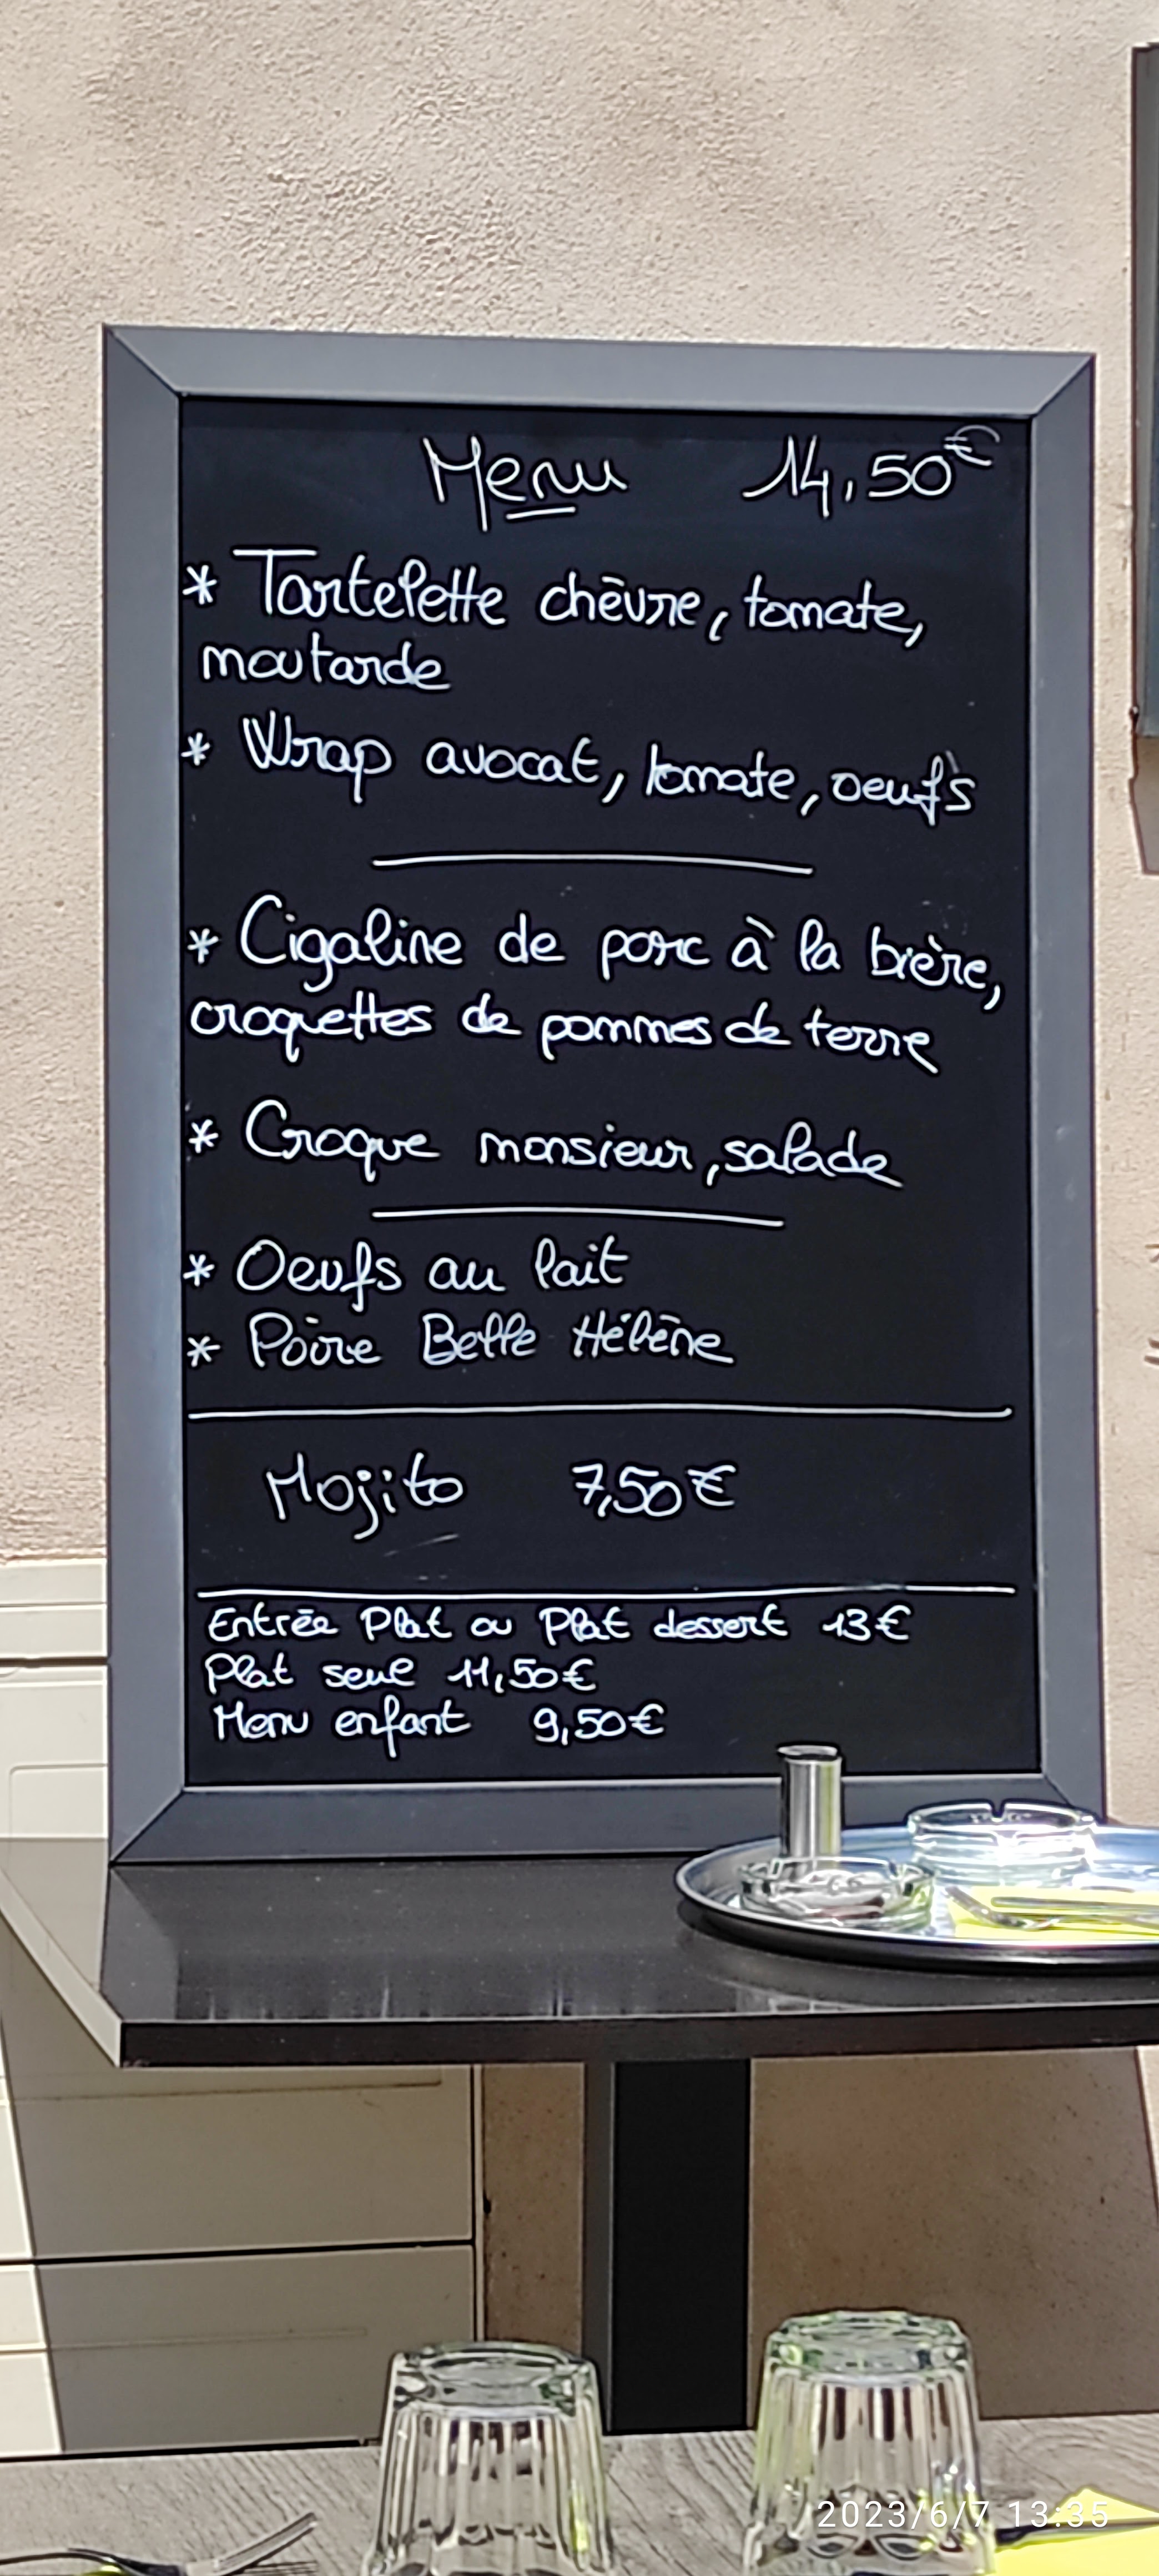 Menu 14,50€
* Tartelette chèvre, tomate,
moutarde
* Wrap avocat, tomate, oeufs
* Cigaline de porc à la bière,
croquettes de pommes de terre
* Croque monsieur, salade
* Oeufs au lait
* Poire Belle Hélène
Mojito 7,50€
Entrée Plat ou Plat dessert 13€
Plat seul 11,50€
Menu enfant 9,50€
2023/6/7 13:35